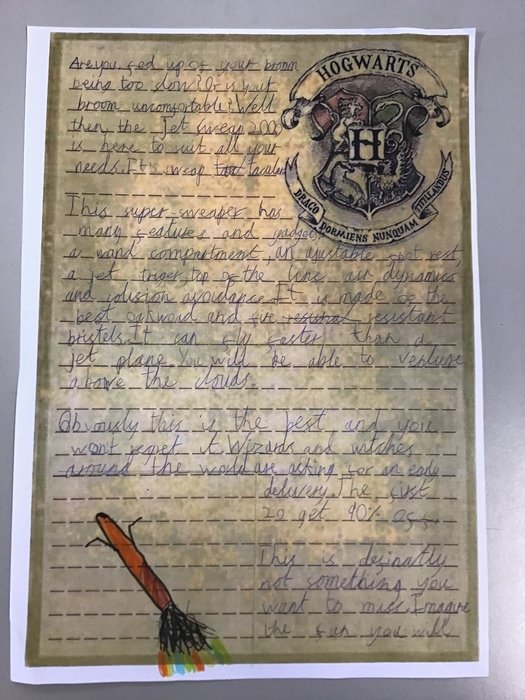 HOGWARTS
H
DRACO DORMIENS NUNQUAM TITILLANDUS
Are you fed up of your broom
being too slow? Or is your
broom unconfortable? Well
then the Jet sweap 2000
is here to suit all your
needs. It's
This super sweaper has
many features and gadgets,
a wand compartment, an foot rest,
a jet top of the line air dynamics
and avoidance. It is made of the
best and fire resistant
bristels. It can fly faster than a
jet plane. You will be able to venture
above the clouds.
Obviously this is the best and you
wont regret it. Wizards and witches
around the world are asking for an early
delivery. The fust
20 get 90% off
This is definatly
not something you
want to miss. Imagine
the fun you will